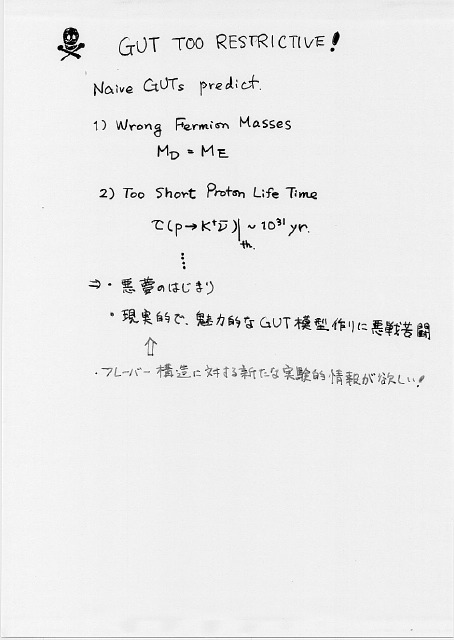 GUT TOO RESTRICTIVE!
Naive GUTs predict.
1) Wrong Fermion Masses
M_D = M_E
2) Too Short Proton Life Time
τ(p→K⁺ν̄)|th. ~ 10³¹ yr.
⇒ ・悪夢のはじまり
・現実的で、魅力的なGUT模型作りに悪戦苦闘
⇑
・フレーバー構造に対する新たな実験的情報が欲しい!